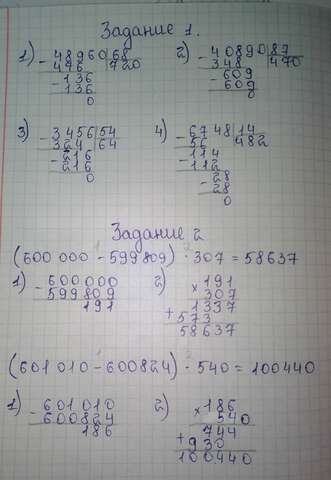 Задание 1.
1) - 48960 | 68   2) - 40890 | 87
476 | 720   348 | 470
- 136   - 609
136   609
0   0
3) - 3456 | 54   4) - 6748 | 14
324 | 64   56 | 482
- 216   - 114
216   112
0   - 28
28
0
Задание 2
(600 000 - 599 809) · 307 = 58637
1) - 600000   2) × 191
599809   307
191   1337
+ 573
58637
(601 010 - 600824) · 540 = 100440
1) - 601010   2) × 186
600824   540
186   744
+ 930
100440